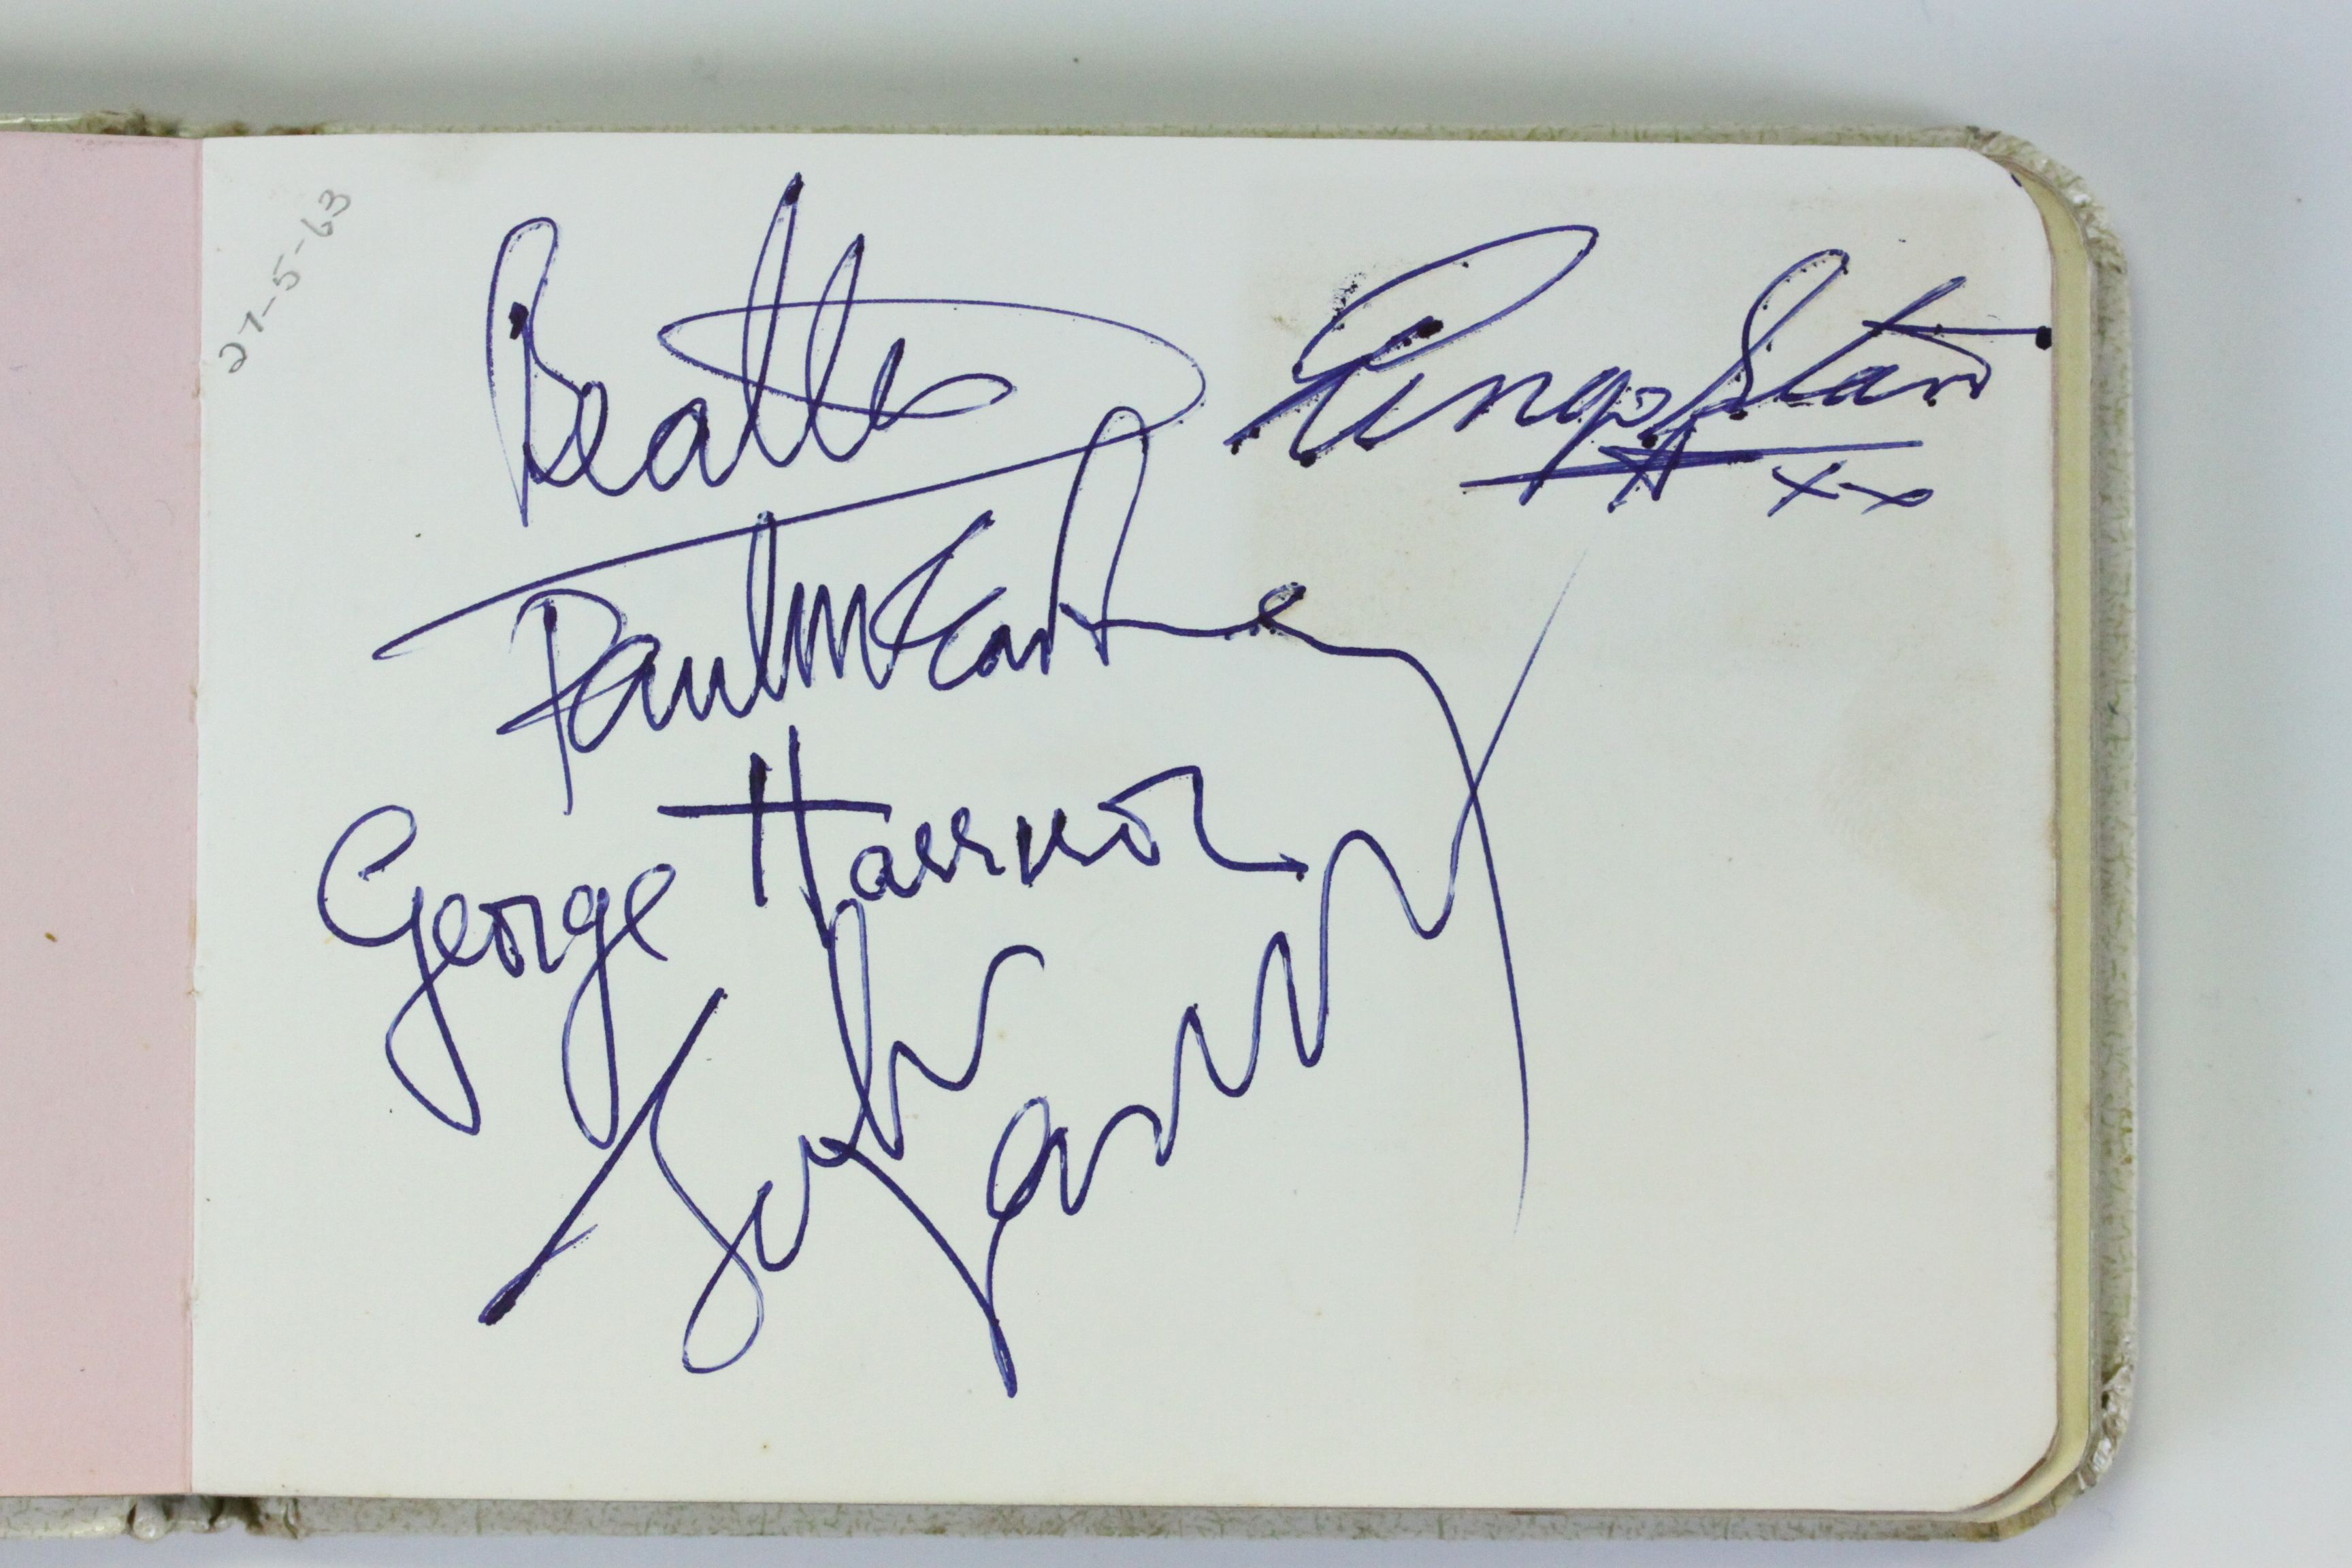 27-5-63
Beatles
Ringo Starr
xx
Paul McCartney
George Harrison
John Lennon